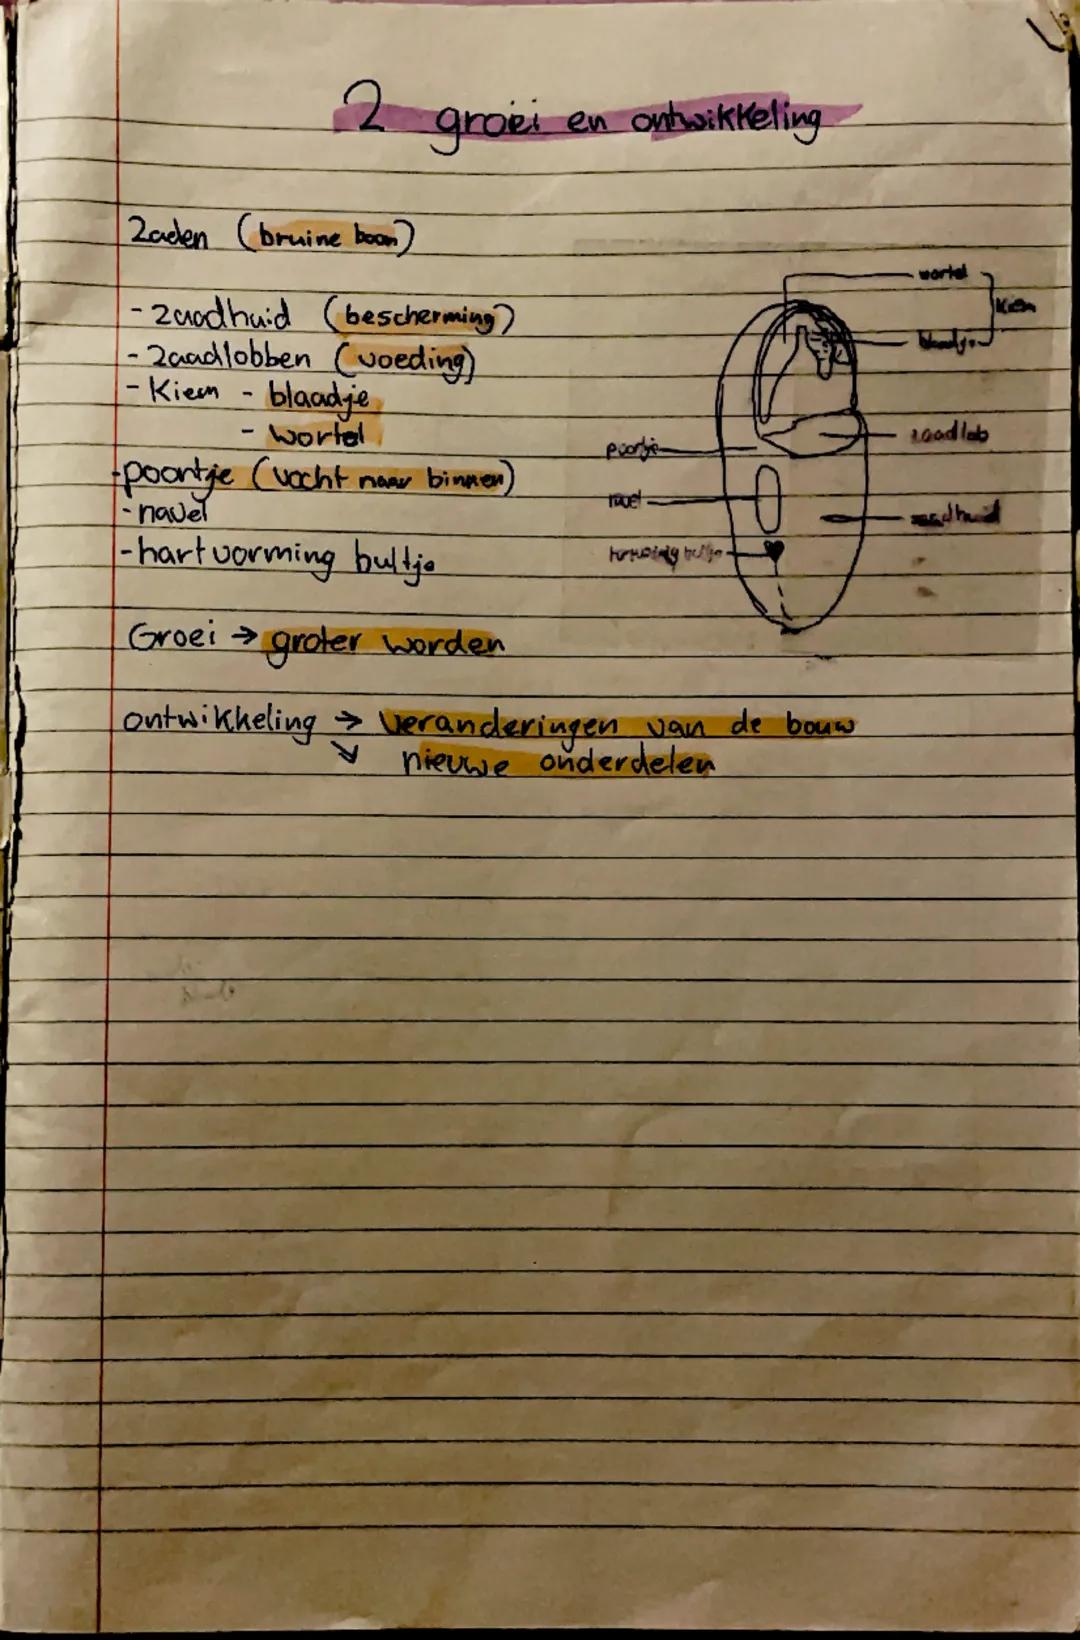 2 groei en ontwikkeling
Zaden (bruine boon)
- zaadhuid (bescherming)
- zaadlobben (voeding)
- Kiem - blaadje
- wortel
- poortje (vocht naar binnen)
- navel
- hartvorming bultje
wortel
Kiem
blaadje
zaadlob
poortje
navel
zaadhuid
hartvorming bultje
Groei → groter worden
ontwikkeling → veranderingen van de bouw
↘ nieuwe onderdelen